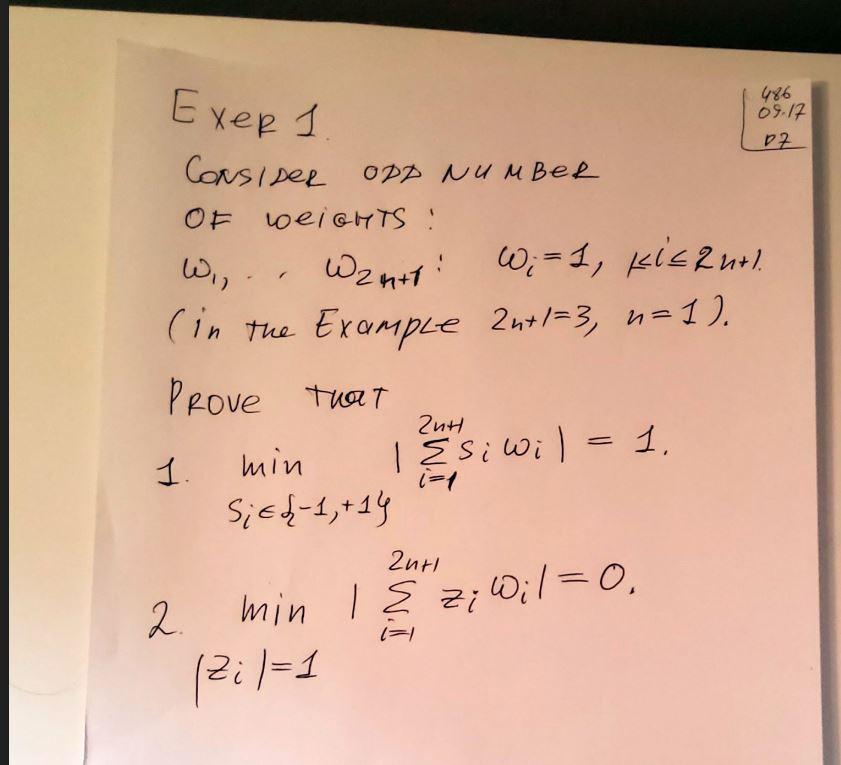 Exer 1.
486
09.17
P7
Consider odd number
of weights:
w₁, . . w₂ₙ₊₁: wᵢ=1, 1≤i≤2n+1.
(in the Example 2n+1=3, n=1).
Prove that
1. min_{sᵢ∈{-1,+1}} |∑_{i=1}^{2n+1} sᵢ wᵢ| = 1.
2. min_{|zᵢ|=1} |∑_{i=1}^{2n+1} zᵢ wᵢ| = 0.